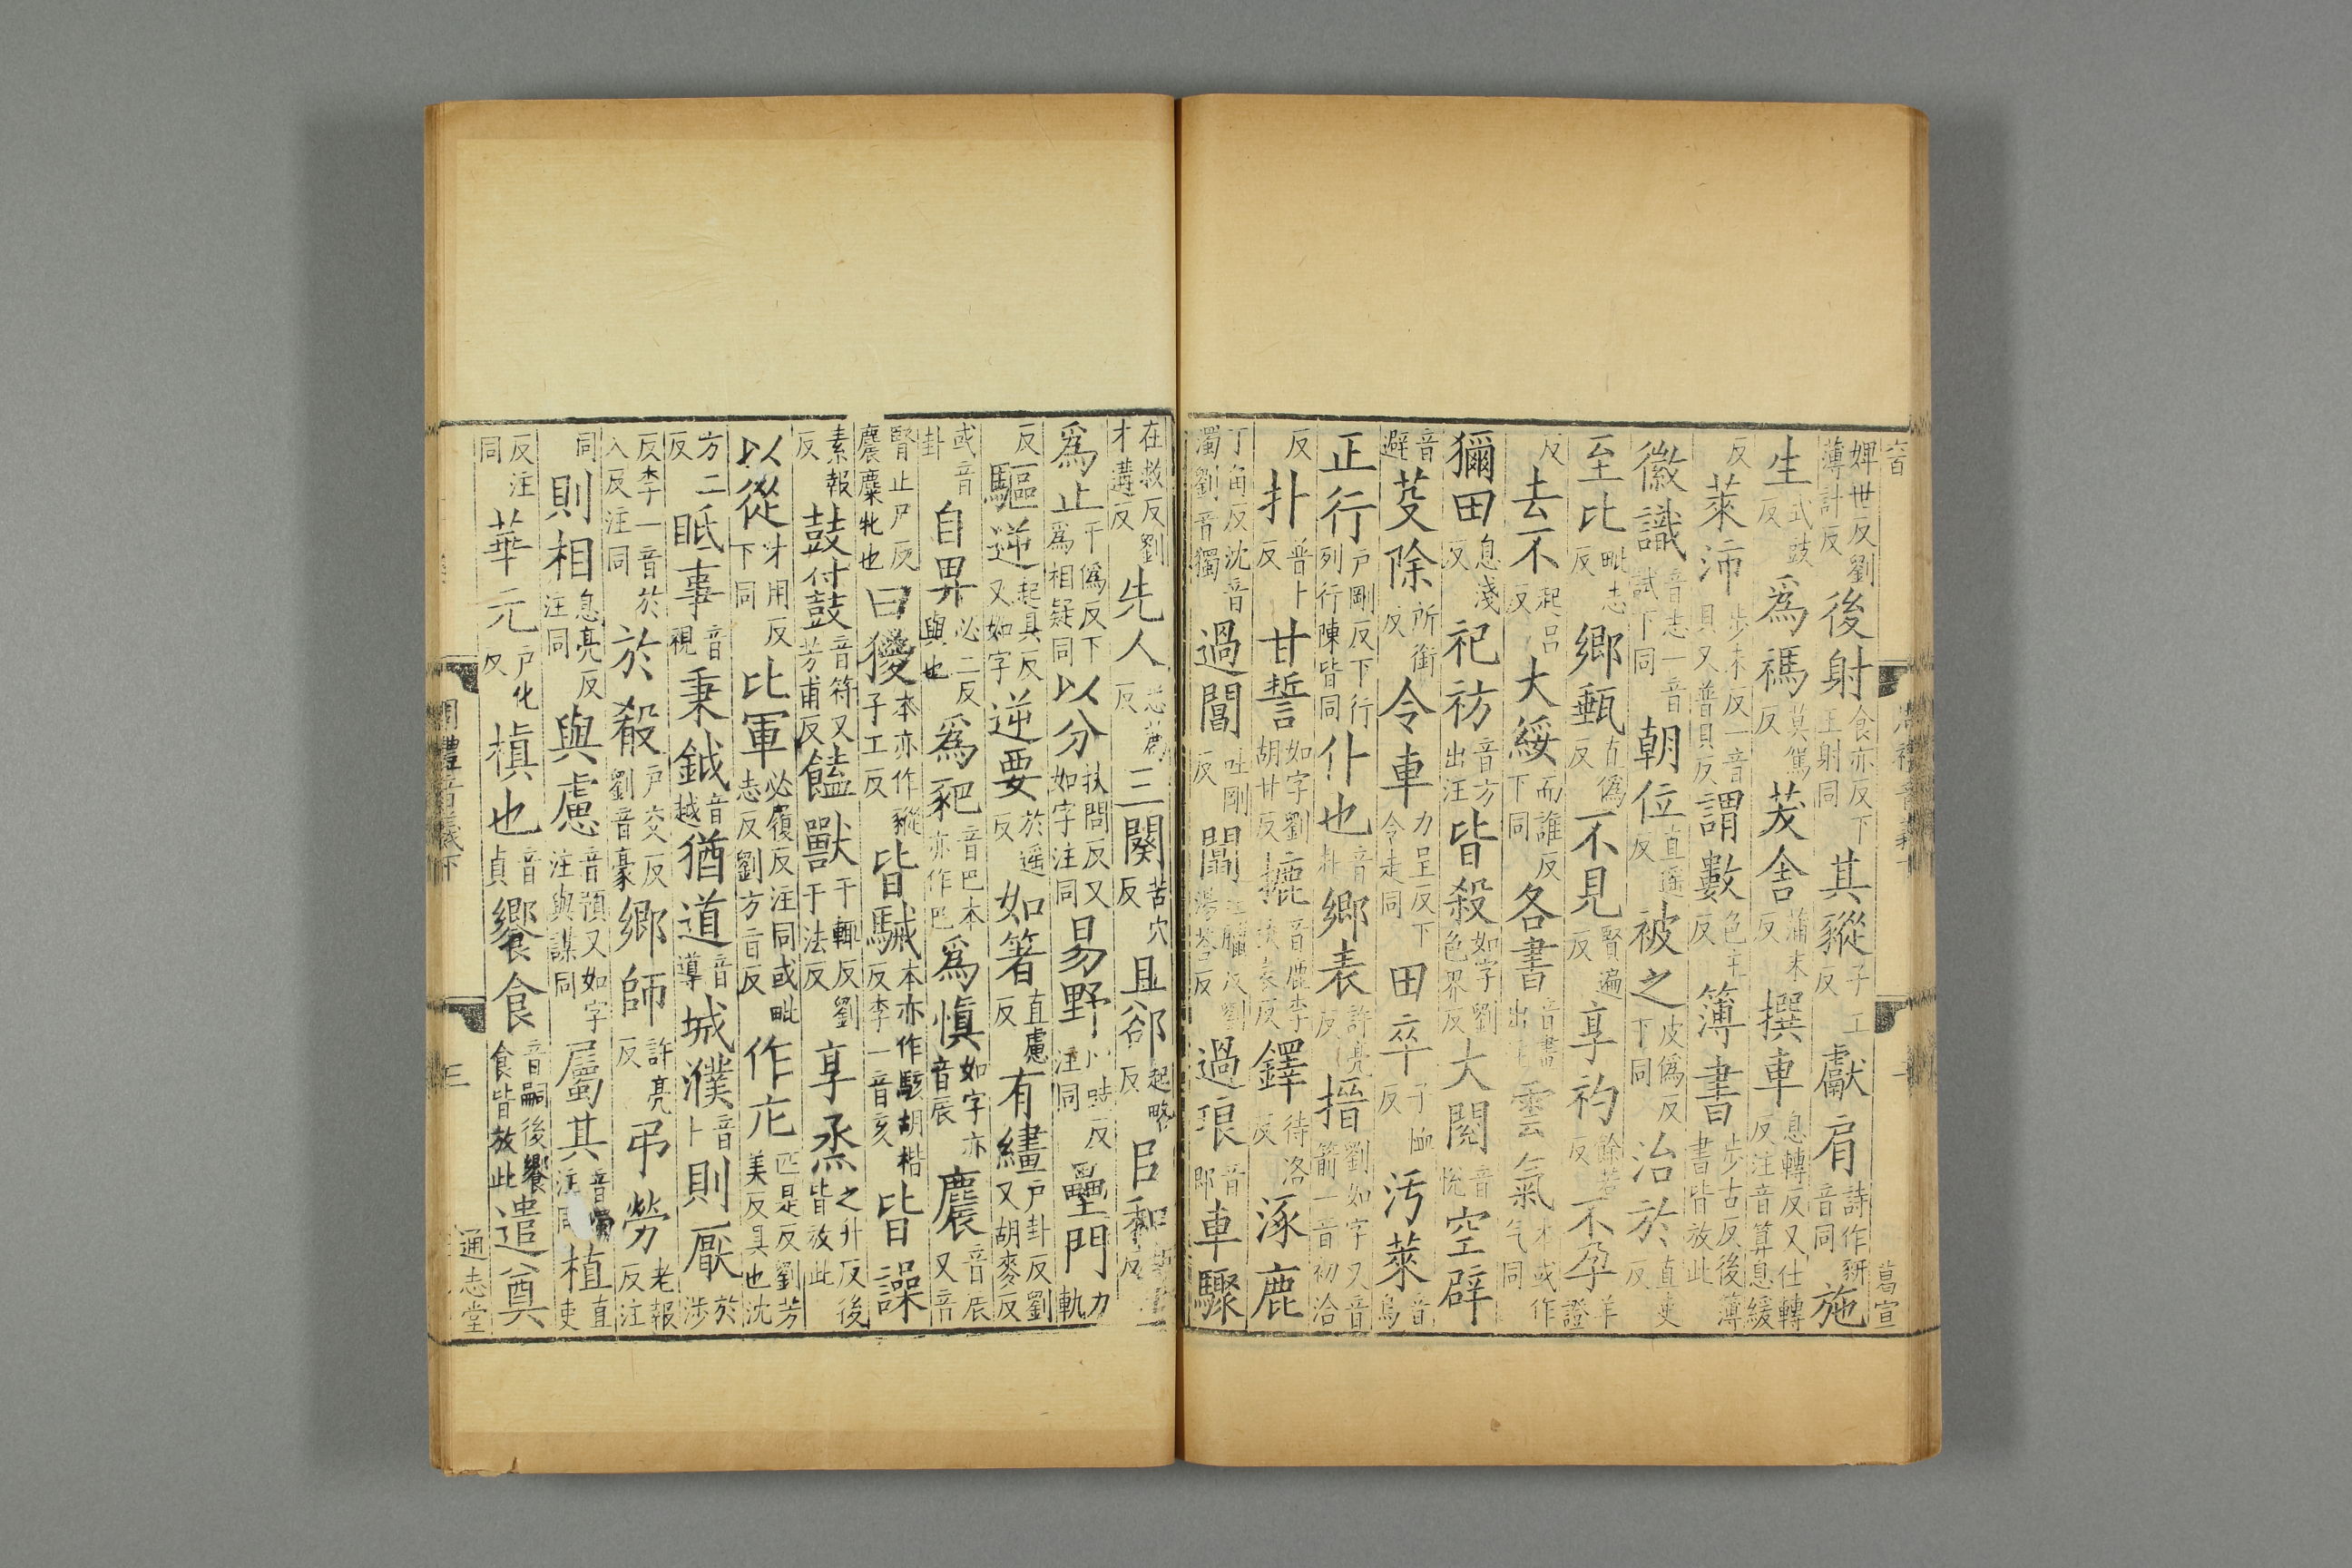 婢世反劉薄計反後射食亦反下王射同其豵子工反獻肩詩作豜音同施
生式豉反爲禡莫駡反茇舍蒲末反撰車息轉反又仕轉反注音算息緩
反萊沛步未反一音貝又普貝反謂數色主反簿書步古反後簿書皆放此
徽識音志一音試下同朝位直遥反被之皮僞反下同治於直吏反
至比毗志反鄉甀直僞反不見賢遍反享礿餘若反不孕羊證
反去不起呂反大綏而誰反下同各書音書出雲氣本或作气同
獮田息淺反祀祊音方出注皆殺如字劉色界反大閱音悅空辟
音避芟除所銜反令車力呈反下令走同田卒子恤反污萊音烏
正行戶剛反下行列行陳皆同仆也音赴鄉表許亮反搢劉如字又音箭一音初洽
反扑普卜反甘誓如字劉胡甘反摝音鹿李扶表反鐸待洛反涿鹿
丁角反沈音濁劉音獨過閶吐剛反闒劉湯荅反過琅音郎車驟
在救反劉才遘反先人悉薦反三闋苦穴反且郤起略反
爲止于僞反下爲相疑同以分扶問反又如字注同易野以豉反注同壘門力軌
反驅逆起具反又如字逆要於遥反如箸直慮反有繣戶卦反劉又胡麥反
或音卦自畀必二反與也爲豝音巴本亦作巴爲慎如字亦音辰麎音辰又音
腎止尸反麎麋牝也曰豵本亦作豵子工反皆駴本亦作駭胡楷反李一音亥皆譟
素報反鼓付鼓音符又芳甫反饁獸于輒反劉于法反享烝之升反後皆放此
以從才用反下同比軍必履反注同或毗志反劉方二反作庀匹是反劉芳美反具也沈
方二反眡事音視秉鉞音越猶道音導城濮音卜則厭於涉
反李一音於入反注同於殽戶交反劉音豪鄉師許亮反弔勞老報反注
同則相息亮反注同與慮音預又如字注與謀同屬其音燭注同植直吏
反注同華元戶化反楨也音貞饗食音嗣後饗食皆放此遣奠
通志堂
葛宣